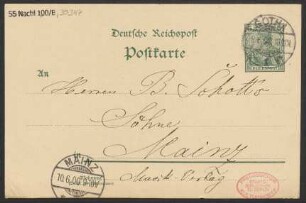 55 Nachl 100/B,
GOTHA
Deutsche Reichspost
Postkarte
An
Herren B. Schott's
Söhne
Mainz
Musik-Verlag
MAINZ
10.6.00